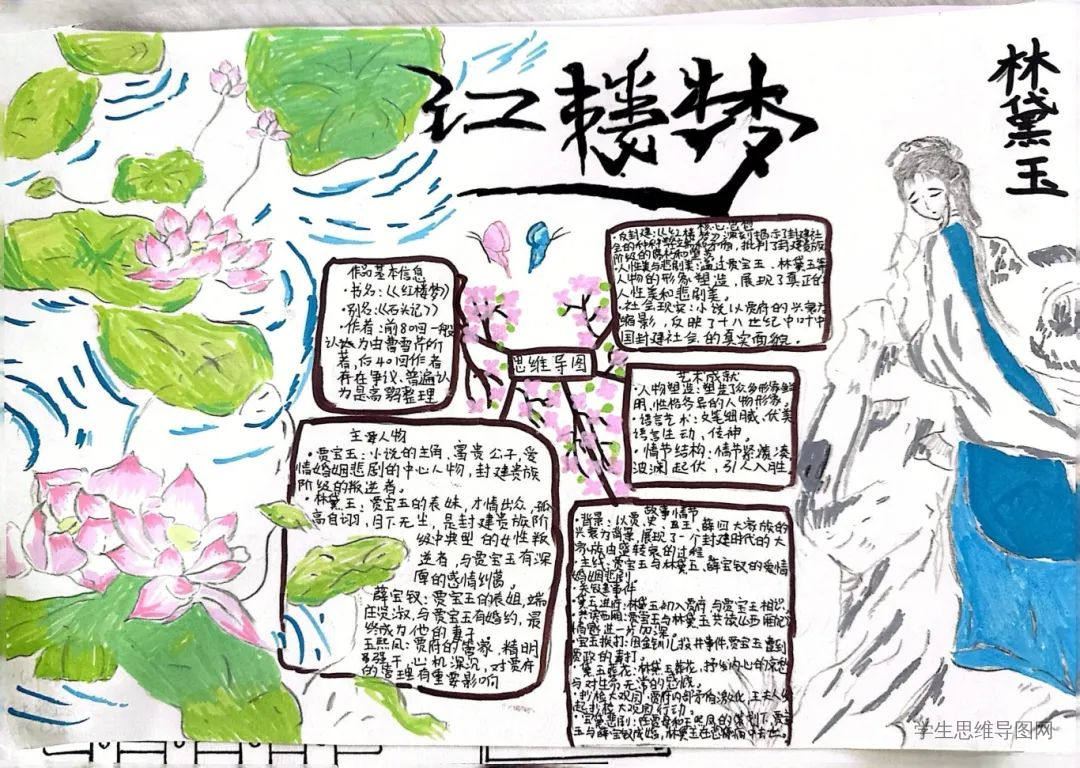 红楼梦
林黛玉
思维导图
作品基本信息
·书名:《红楼梦》
·别名:《石头记》
·作者:前80回一般
认为由曹雪芹所
著,后40回作者
存在争议,普遍认
为是高鹗整理
主要人物
·贾宝玉:小说的主角,富贵公子,爱
情婚姻悲剧的中心人物,封建贵族
阶级的叛逆者。
·林黛玉:贾宝玉的表妹,才情出众,孤
高自诩,目下无尘,是封建贵族阶
级中典型的女性叛
逆者,与贾宝玉有深
厚的感情纠葛。
薛宝钗:贾宝玉的表姐,端
庄贤淑,与贾宝玉有婚约,最
终成为他的妻子
王熙凤:贾府的管家,精明
强干,心机深沉,对贾府
的管理有重要影响
核心思想
·反封建:《红楼梦》深刻揭示了封建社
会的种种矛盾,批判了封建贵族
阶级的腐朽和
·人性美与悲剧美:通过贾宝玉、林黛玉等
人物的形象塑造,展现了真正的
人性美和悲剧美。
·社会现实:小说以贾府的兴衰为
缩影,反映了十八世纪中叶中
国封建社会的真实面貌.
艺术成就
·人物塑造:塑造了众多形象鲜
明,性格各异的人物形象。
·语言艺术:文笔细腻、优美
语言生动,传神。
·情节结构:情节紧凑,凌
波澜起伏,引人入胜
故事情节
·背景:以贾、史、王、薛四大家族的
兴衰为背景,展现了一个封建时代的大
家族由盛转衰的过程
·主线:贾宝玉与林黛玉、薛宝钗的爱情
婚姻悲剧
·关键事件
·黛玉进府:林黛玉初入贾府,与贾宝玉相识.
·共读西厢:贾宝玉与林黛玉共读《西厢记》
情感进一步加深
·宝玉挨打:因金钏儿投井事件,贾宝玉遭到
贾政的毒打。
·黛玉葬花:林黛玉葬花,抒发内心的哀愁
与对世事无常的感慨。
·抄检大观园:贾府内部矛盾激化,王夫人
起抄检大观园行动。
·宝黛悲剧:在贾母和王熙凤的策划下,贾宝
玉与薛宝钗成婚,林黛玉在悲痛中去世。
学生思维导图网